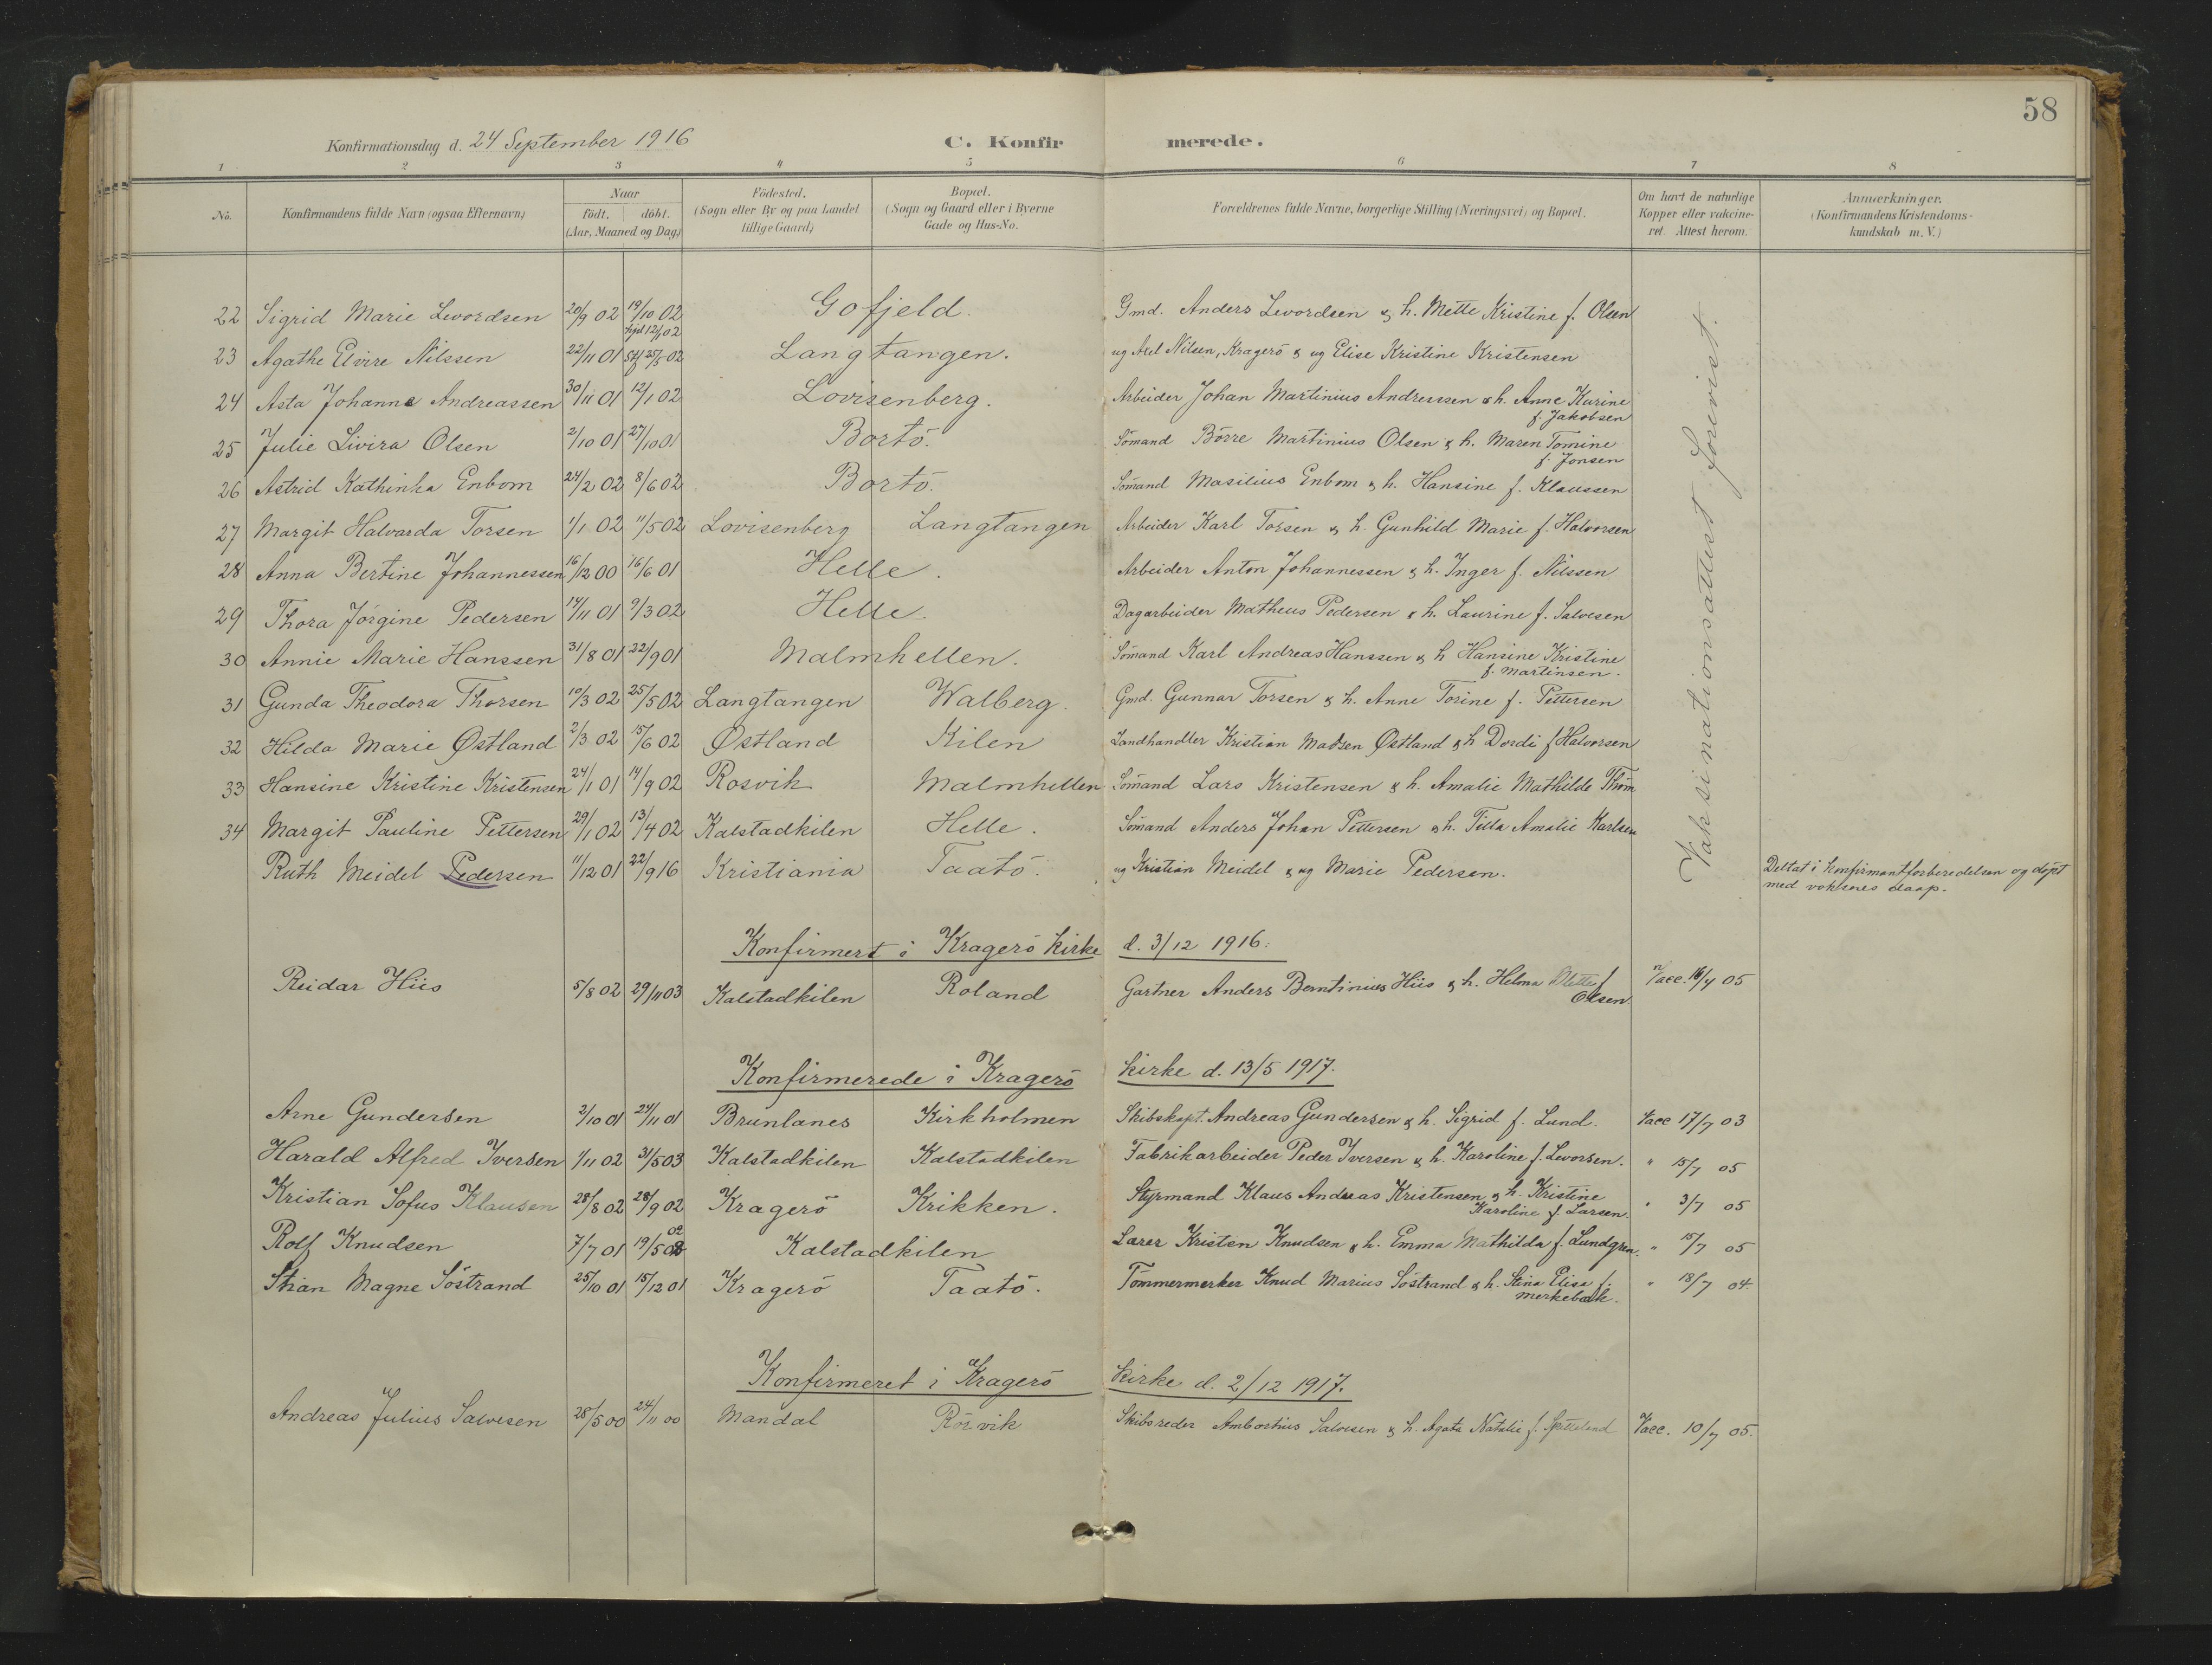 58
Konfirmationsdag d. 24 September 1916 C. Konfir merede.
1 2 3 4 5 6 7 8
No. Konfirmandens fulde Navn (ogsaa Efternavn) Naar født. døbt. (Aar, Maaned og Dag) Fødested. (Sogn eller By og paa Landet tillige Gaard) Bopæl. (Sogn og Gaard eller i Byerne Gade og Hus-No. Forældrenes fulde Navne, borgerlige Stilling (Næringsvei) og Bopæl. Om havt de naturlige Kopper eller vakcineret. Attest herom. Anmærkninger. (Konfirmandens Kristendomskundskab m. V.)
22 Sigrid Marie Levordsen 20/9 02 19/10 02 Gofjeld. Gmd. Anders Levordsen & h. Mette Kristine f. Olsen
23 Agathe Elvire Nilssen 22/11 01 hjd 12/1 02 stf 25/5 02 Langtangen. ug Axel Nilsen, Kragerö & ug Elise Kristine Kristensen
24 Asta Johanne Andreassen 30/11 01 12/1 02 Lovisenberg. Arbeider Johan Martinius Andreassen & h. Anne Karine
f. Jakobsen
25 Julie Livira Olsen 2/10 01 27/10 01 Bortö. Sömand Börre Martinius Olsen & h. Maren Tomine
f. Jonsen
26 Astrid Kathinka Enbom 24/2 02 8/6 02 Bortö. Sömand Masilius Enbom & h. Hansine f. Klaussen
27 Margit Halvarda Torsen 1/1 02 11/5 02 Lovisenberg Langtangen Arbeider Karl Torsen & h. Gunhild Marie f. Halvorsen
28 Anna Bertine Johannessen 16/12 00 16/6 01 Helle. Arbeider Anton Johannessen & h. Inger f. Nilssen
29 Thora Jörgine Pedersen 14/11 01 9/3 02 Helle. Dagarbeider Matheus Pedersen & h. Laurine f. Salvesen
30 Annie Marie Hanssen 31/8 01 22/9 01 Malmhellen. Sömand Karl Andreas Hanssen & h Hansine Kristine
f. Martinsen.
31 Gunda Theodora Thorsen 10/3 02 25/5 02 Langtangen Walberg. Gmd. Gunnar Torsen & h. Anne Torine f. Pettersen
32 Hilda Marie Østland 2/3 02 15/6 02 Østland Kilen Landhandler Kristian Madsen Østland & h Dordi f Halvorsen
33 Hansine Kristine Kristensen 24/1 01 14/9 02 Rosvik Malmhellen Sömand Lars Kristensen & h. Amalie Mathilde Thom
34 Margit Pauline Pettersen 29/1 02 13/4 02 Kalstadkilen Helle. Sömand Anders Johan Pettersen & h. Tilla Amalie Karlsen
Ruth Meidel Pedersen 11/12 01 22/9 16 Kristiania Taatö. ug Kristian Meidel & ug Marie Pedersen. Deltat i konfirmantforberedelsen og döpt
med voksnes daap.
Vaksinationsattest forevist.
Konfirmert i Kragerö kirke d. 3/12 1916.
Reidar Hiis 5/8 02 29/11 03 Kalstadkilen Roland Gartner Anders Berntinius Hiis & h. Helma f
Olsen Vacc. 16/4 05
Konfirmerede i Kragerö kirke d. 13/5 1917.
Arne Gundersen 2/10 01 24/11 01 Brunlanes Kirkholmen Skibskapt. Andreas Gundersen & h. Sigrid f. Lund. Vacc 17/7 03
Harald Alfred Iversen 1/11 02 31/5 03 Kalstadkilen Kalstadkilen Fabrikarbeider Peder Iversen & h. Karoline f. Levorsen. " 15/7 05
Kristian Sofus Klausen 28/8 02 28/9 02 Kragerö Krikken. Styrmand Klaus Andreas Kristensen & h. Kristine
Karoline f. Larsen. " 3/7 05
Rolf Knudsen 7/7 01 19/5 02 Kalstadkilen Lærer Kristen Knudsen & h. Emma Mathilda f. Lundgren. " 15/7 05
Stian Magne Söstrand 25/10 01 15/12 01 Kragerö Taatö. Tömmermerker Knud Marius Söstrand & h. Stina Elisa f.
Merkebæk. " 18/7 04.
Konfirmeret i Kragerö kirke d. 2/12 1917.
Andreas Julius Salvesen 28/5 00 24/11 00 Mandal Rösvik Skibsreder Ambortius Salvesen & h. Agata Natalie f. Vacc. 10/7 05.